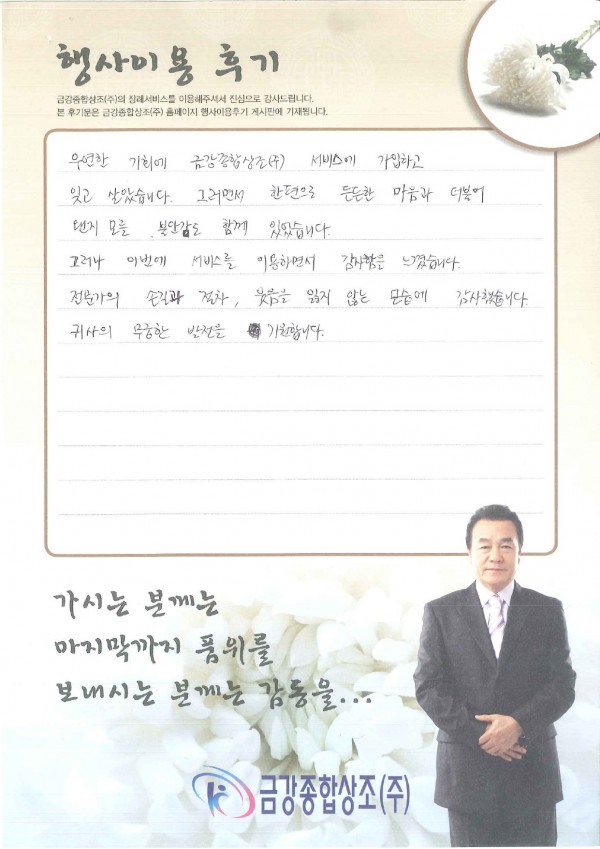 행사이용 후기
금강종합상조(주)의 장례서비스를 이용해주셔서 진심으로 감사드립니다.
본 후기문은 금강종합상조(주) 홈페이지 행사이용후기 게시판에 기재됩니다.
우연한 기회에 금강종합상조(주) 서비스에 가입하고
잊고 살았습니다. 그러면서 한편으로 든든한 마음과 더불어
왠지 모를 불안감도 함께 있었습니다.
그러나 이번에 서비스를 이용하면서 감사함을 느꼈습니다.
전문가의 손길과 절차, 웃음을 잃지 않는 모습에 감사했습니다.
귀사의 무궁한 발전을 기원합니다.
가시는 분께는
마지막까지 품위를
보내시는 분께는 감동을...
금강종합상조(주)